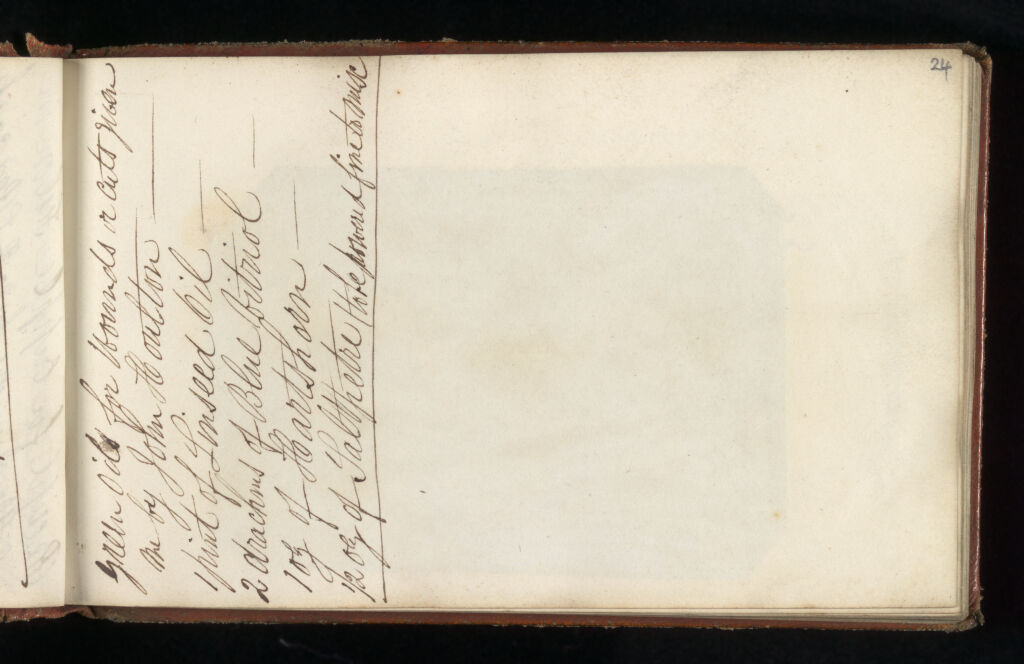 24
Green Oils for Wounds or Cuts given
me by John Houlton
1 pint of Linseed Oil
2 drachms of Blue Vitriol
1 oz of Hartshorn
1/2 oz of Saltpetre to be pownd fine to mix